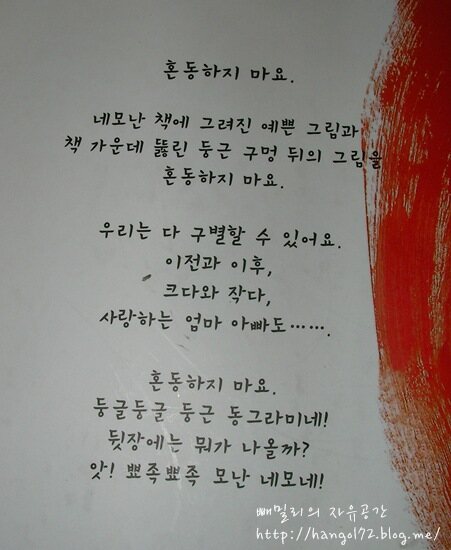 혼동하지 마요.
네모난 책에 그려진 예쁜 그림과
책 가운데 뚫린 둥근 구멍 뒤의 그림을
혼동하지 마요.
우리는 다 구별할 수 있어요.
이전과 이후,
크다와 작다,
사랑하는 엄마 아빠도…….
혼동하지 마요.
둥글둥글 둥근 동그라미네!
뒷장에는 뭐가 나올까?
앗! 뾰족뾰족 모난 네모네!
빼밀리의 자유공간
http://hangol72.blog.me/